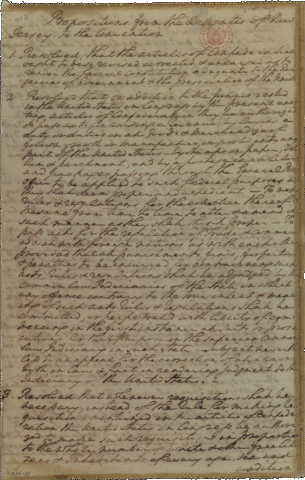 Propositions from the Delegates of New
Jersey to the Convention
1. Resolved that the articles of Confederation
ought to be so revised corrected & enlarged as to
render the federal constitution adequate to the exi-
gences of Government & the preservation of the Union
2. Resolved that in addition to the powers vested
in the United States in Congress by the present exis-
ting articles of Confederation they be authorized
to pass acts for
duty or duties on all goods & merchandize of
foreign growth or manufacture imported into any
part of the United States
and by a postage on all letters
and packages passing through the General Post
Office to be applied to such federal purposes as
they shall deem proper and expedient — To make
rules & regulations for the collection thereof
from time to time to alter & amend
in such manner as they shall think proper — To
pass acts for the regulation of Trade & Commerce
as well with foreign nations as with each other
Provided that all punishments fines forfeitures
& penalties to be incurred for contravening such
acts rules & regulations shall be adjudged by the
common law Judiciaries of the State in which
any offence contrary to the true intent & meaning
of such acts rules & regulations shall be
committed or perpetrated with liberty of Com-
mencing in the first instance all suits
in the superior Common
law Judiciary of such State
for the correction of all errors
both in law & fact in rendering Judgment to the
Judiciary of the United States. —
3. Resolved that whenever requisitions shall be
necessary instead of the rule for making re-
quisitions mentioned in the articles of Confede-
ration the United States in Congress be autho-
rized to make such requisitions in proportion
to the whole number of white & other free citi-
zens & Inhabitants of every age sex and
condition